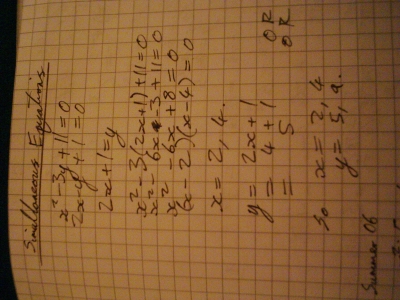 Simultaneous Equations
x² - 3y + 11 = 0
2x - y + 1 = 0
2x + 1 = y
x² - 3(2x+1) + 11 = 0
x² - 6x - 3 + 11 = 0
x² 6x + 8 = 0
(x - 2)(x - 4) = 0
x = 2, 4.
y = 2x + 1 OR
= 4 + 1 OR
= 5
So x = 2, 4
y = 5, a.
Summer 06